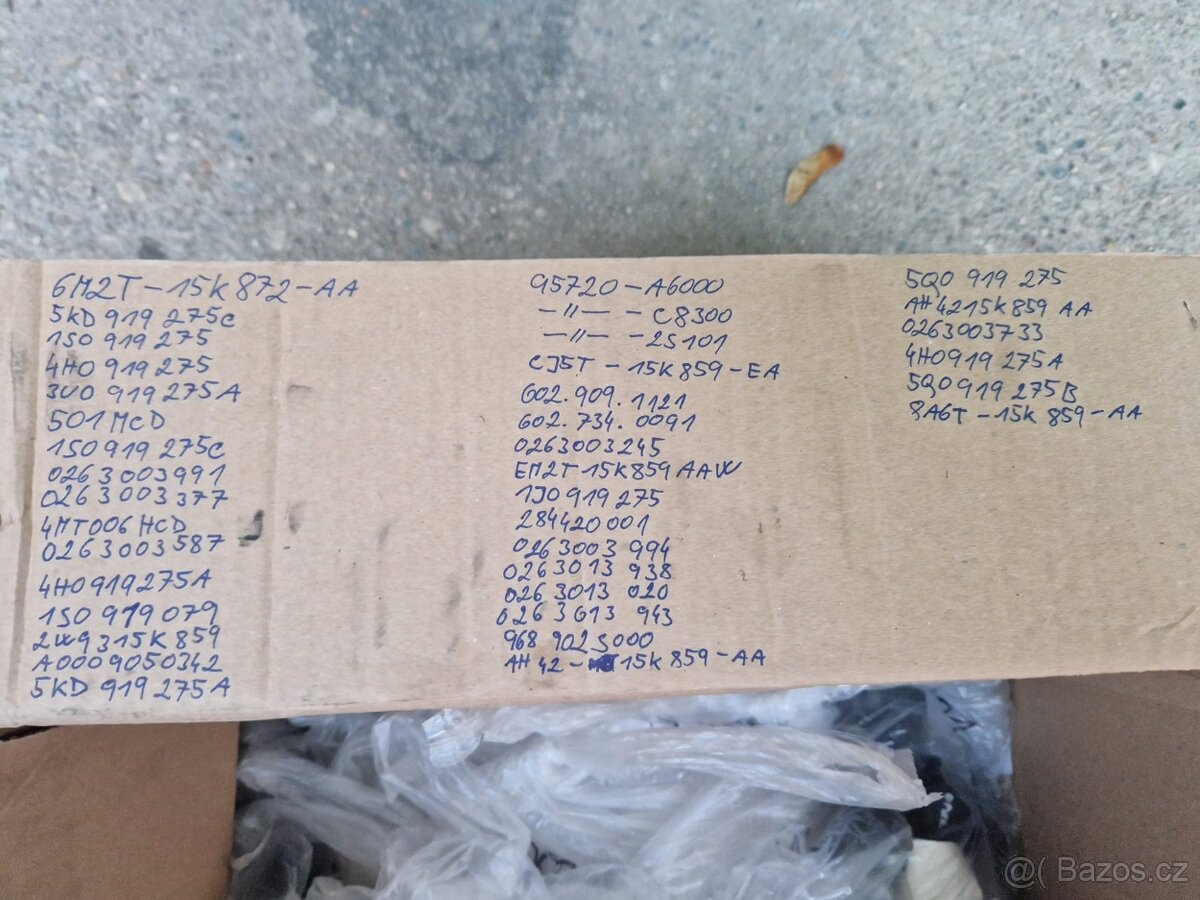 6M2T-15K872-AA
5KD 919 275C
1S0 919 275
4H0 919 275
3U0 919 275A
501MCD
1S0919 275C
0263003991
0263003377
4MT006HCD
0263003587
4H0919275A
1S0919079
2W9315K859
A0009050342
5KD 919 275A
95720-A6000
-〃- - C8300
-〃- -2S101
CJ5T-15K859-EA
602.909.1121
602.734.0091
0263003245
EM2T 15K859AAW
1J0919275
284420001
0263003 994
0263013 938
0263013 020
0263613 943
968 902S000
AH42- 15K859-AA
5Q0 919 275
AH4215K859 AA
0263003733
4H0919 275A
5Q0919 275B
8A6T-15K859-AA
@( Bazos.cz